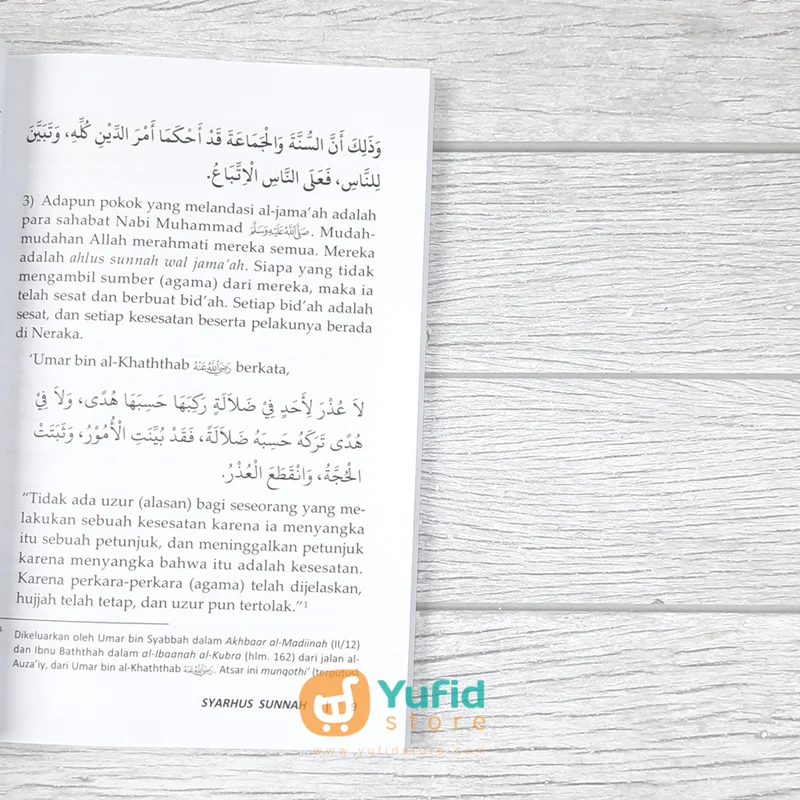 وَذَلِكَ أَنَّ السُّنَّةَ وَالْجَمَاعَةَ قَدْ أَحْكَمَا أَمْرَ الدِّيْنِ كُلِّهِ، وَتَبَيَّنَ
لِلنَّاسِ، فَعَلَى النَّاسِ الْاِتِّبَاعُ.
3) Adapun pokok yang melandasi al-jama'ah adalah
para sahabat Nabi Muhammad ﷺ. Mudah-
mudahan Allah merahmati mereka semua. Mereka
adalah ahlus sunnah wal jama'ah. Siapa yang tidak
mengambil sumber (agama) dari mereka, maka ia
telah sesat dan berbuat bid'ah. Setiap bid'ah adalah
sesat, dan setiap kesesatan beserta pelakunya berada
di Neraka.
'Umar bin al-Khaththab رَضِيَ اللهُ عَنْهُ berkata,
لاَ عُذْرَ لِأَحَدٍ فِيْ ضَلاَلَةٍ رَكِبَهَا حَسِبَهَا هُدًى، وَلاَ فِيْ
هُدًى تَرَكَهُ حَسِبَهُ ضَلاَلَةً، فَقَدْ بُيِّنَتِ الْأُمُوْرُ، وَثَبَتَتْ
الْحُجَّةُ، وَانْقَطَعَ الْعُذْرُ.
"Tidak ada uzur (alasan) bagi seseorang yang me-
lakukan sebuah kesesatan karena ia menyangka
itu sebuah petunjuk, dan meninggalkan petunjuk
karena menyangka bahwa itu adalah kesesatan.
Karena perkara-perkara (agama) telah dijelaskan,
hujjah telah tetap, dan uzur pun tertolak."1
Dikeluarkan oleh Umar bin Syabbah dalam Akhbaar al-Madiinah (II/12)
dan Ibnu Baththah dalam al-Ibaanah al-Kubra (hlm. 162) dari jalan al-
Auza'iy, dari Umar bin al-Khaththab رَضِيَ اللهُ عَنْهُ. Atsar ini munqothi' (terputus)
SYARHUS SUNNAH 9
Yufid
store
www.yufidstore.com